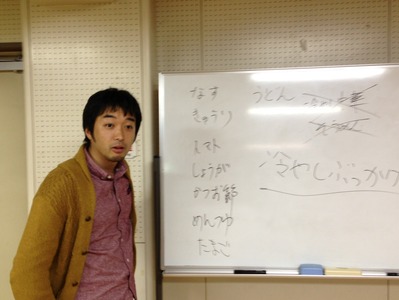 なす
きゅうり
トマト
しょうが
かつお節
めんつゆ
たまご
うどん
冷やしぶっかけ